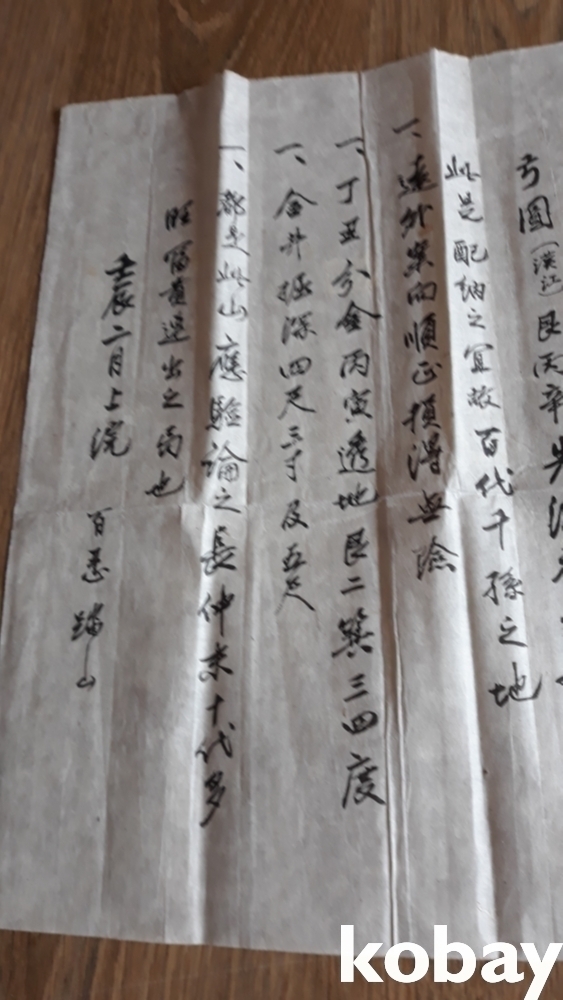 弓圓(漢江)艮丙辛
此是配納之宜故百代千孫之地
一、遠外案向順正損得無險
一、丁丑分金丙寅透地艮二箕三四度
一、金井掘深四尺三寸及五尺
一、都是此山應驗論之長仲末十代多
旺富貴運出之而也
壬辰二月上浣
百忍 踏山
kobay